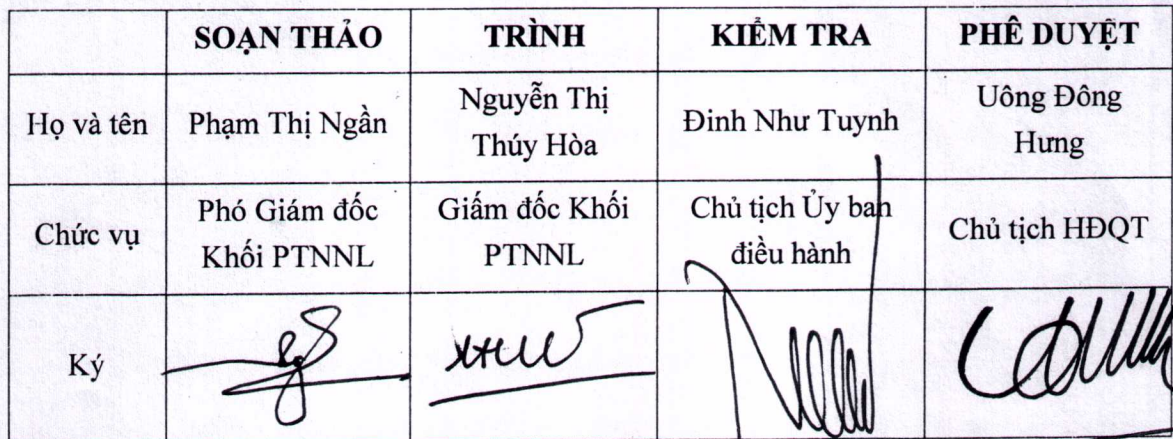 SOẠN THẢO TRÌNH KIỂM TRA PHÊ DUYỆT
Họ và tên Phạm Thị Ngần Nguyễn Thị Thúy Hòa Đinh Như Tuynh Uông Đông Hưng
Chức vụ Phó Giám đốc Khối PTNNL Giấm đốc Khối PTNNL Chủ tịch Ủy ban điều hành Chủ tịch HĐQT
Ký